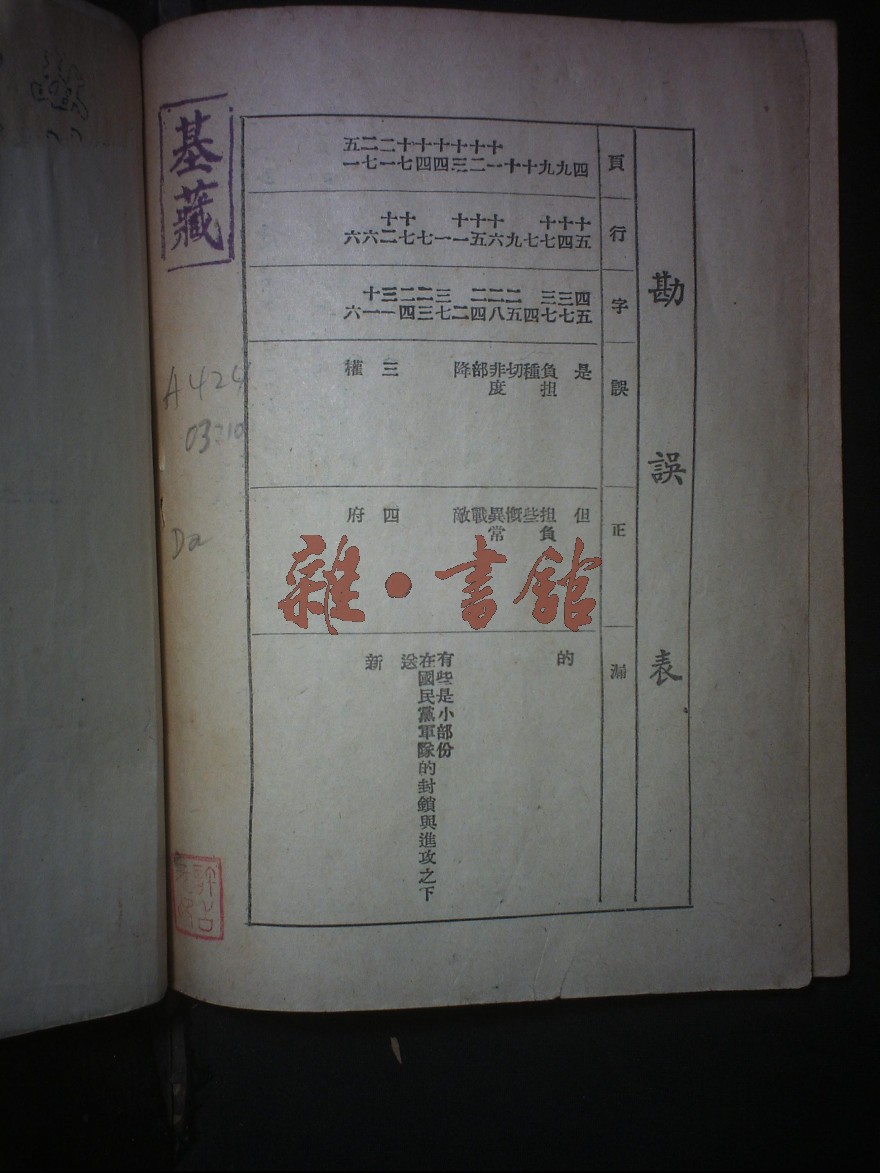 勘誤表
頁 行 字 誤 正 漏
四 十五 四五 是 但
九 十四 三七 的
九 十七 三七 負担 担負
十 七 四 種 些
十 九 二五 切 慨
十一 十六 二八 非度 異常
十二 十五 二四 部 戰
十三 十一 二 降 敵
十四 一 三七 有些是小部份
十四 七 二三 在國民黨軍隊的封鎖與進攻之下
十七 十七 二四 送
二一 十二 三一 三 四
二七 六 十一 新
五一 六 六 權 府
基藏
A424
03210
Da
雜·書館